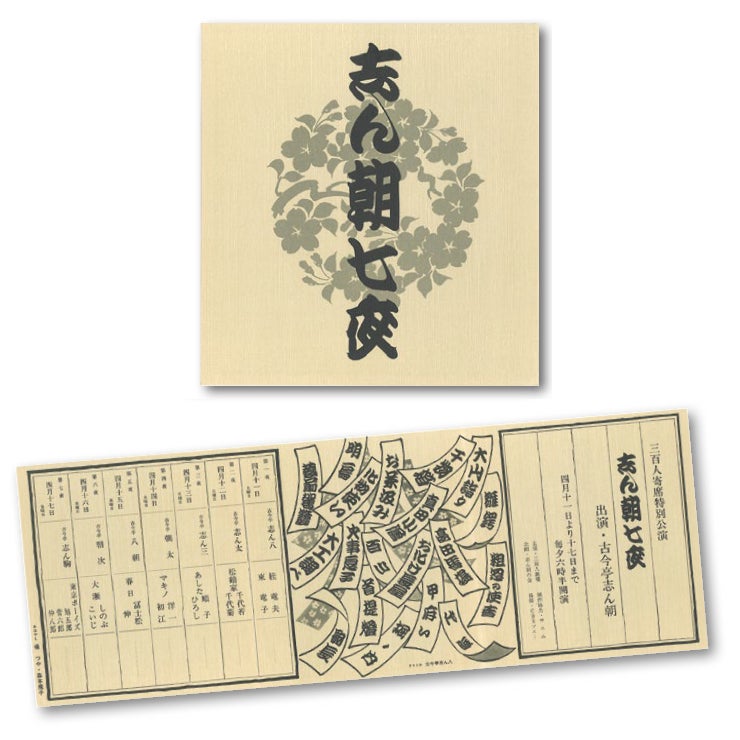 志ん朝七夜
三百人寄席特別公演
志ん朝七夜
出演・古今亭志ん朝
四月十一日より十七日まで
毎夕六時半開演
大山詣り
雛鍔
粗忽の使者
干物箱
高田馬場
お化け長屋
甲府い
代脈
お茶汲み
首提燈
百川
火事息子
大工調べ
明烏
第一夜
四月十一日
古今亭 志ん八
桂 竜夫
東 竜子
第二夜
四月十二日
古今亭 志ん太
松鶴家 千代若
千代菊
第三夜
四月十三日
古今亭 志ん三
あした 順子
ひろし
第四夜
四月十四日
古今亭 朝太
マキノ 洋一
初江
第五夜
四月十五日
古今亭 八朝
春日 富士松
伸
第六夜
四月十六日
古今亭 朝次
大瀬 しのぶ
こいじ
第七夜
四月十七日
古今亭 志ん駒
東京ボーイズ
旭五郎
菅六郎
仲八郎